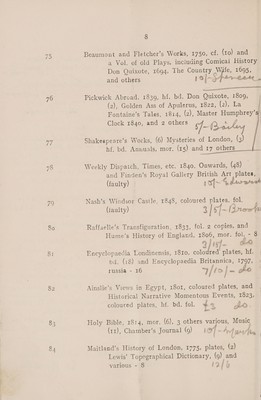 8
75 Beaumont and Fletcher's Works, 1750, cf. (10) and
a Vol. of old Plays, including Comical History
Don Quixote, 1694, The Country Wife, 1695,
and others 10/- Spencer
76 Pickwick Abroad, 1839, hf. bd. Don Quixote, 1809,
(2), Golden Ass of Apuleius, 1822, (2), La
Fontaine's Tales, 1814, (2), Master Humphrey's
Clock 1840, and 2 others 5/- Bailey
77 Shakespeare's Works, (6) Mysteries of London, (3)
hf. bd. Annuals, mor. (15) and 17 others
78 Weekly Dispatch, Times, etc. 1840, Onwards, (48)
and Finden's Royal Gallery British Art plates,
(faulty) 10/- Edwards
79 Nash's Windsor Castle, 1848, coloured plates, fol.
(faulty)
80 Raffaelle's Transfiguration, 1833, fol. 2 copies, and
Hume's History of England, 1806, mor. fol. - 8
do
81 Encyclopædia Londinensis, 1810, coloured plates, hf.
bd. (18) and Encyclopædia Britannica, 1797,
russia - 16 7/10/- do
82 Ainslie's Views in Egypt, 1801, coloured plates, and
Historical Narrative Momentous Events, 1823,
coloured plates, hf. bd. fol. £3 do
83 Holy Bible, 1814, mor. (6), 3 others various, Music
(11), Chamber's Journal (9)
84 Maitland's History of London, 1775, plates, (2)
Lewis' Topographical Dictionary, (9) and
various - 8 12/6